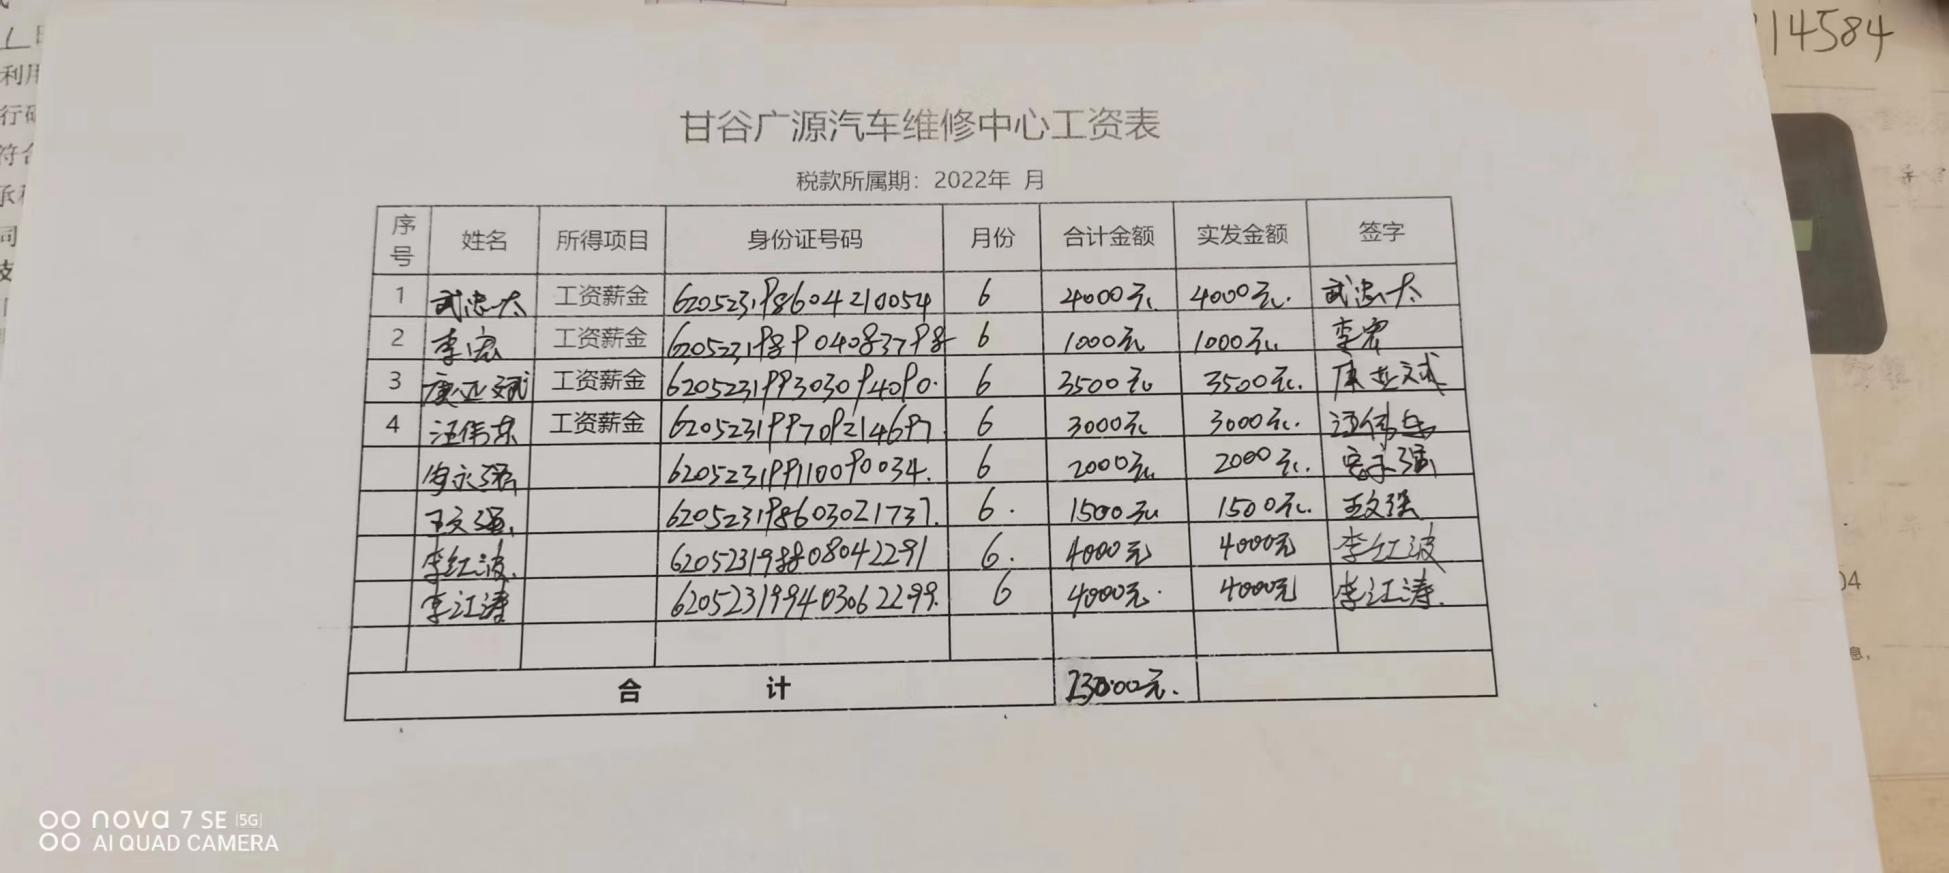 14584
甘谷广源汽车维修中心工资表
税款所属期：2022年 月
序号 姓名 所得项目 身份证号码 月份 合计金额 实发金额 签字
1 武忠太 工资薪金 620523198604210054 6 4000元 4000元. 武忠太
2 李宏 工资薪金 620523198904083798 6 1000元 1000元. 李宏
3 康亚斌 工资薪金 620523199303094090. 6 3500元 3500元. 康亚斌
4 汪伟东 工资薪金 620523199709214697 6 3000元 3000元. 汪伟东
永强 620523199110090034. 6 2000元 2000元. 永强
王文强 620523198603021737. 6. 1500元 1500元. 王文强
李红波. 620523198808042291 6. 4000元 4000元 李红波
李江涛 620523199403062299. 6 4000元. 4000元 李江涛.
合 计 23000元.
利用
符合
同
04
息,
nova 7 SE 5G
AI QUAD CAMERA